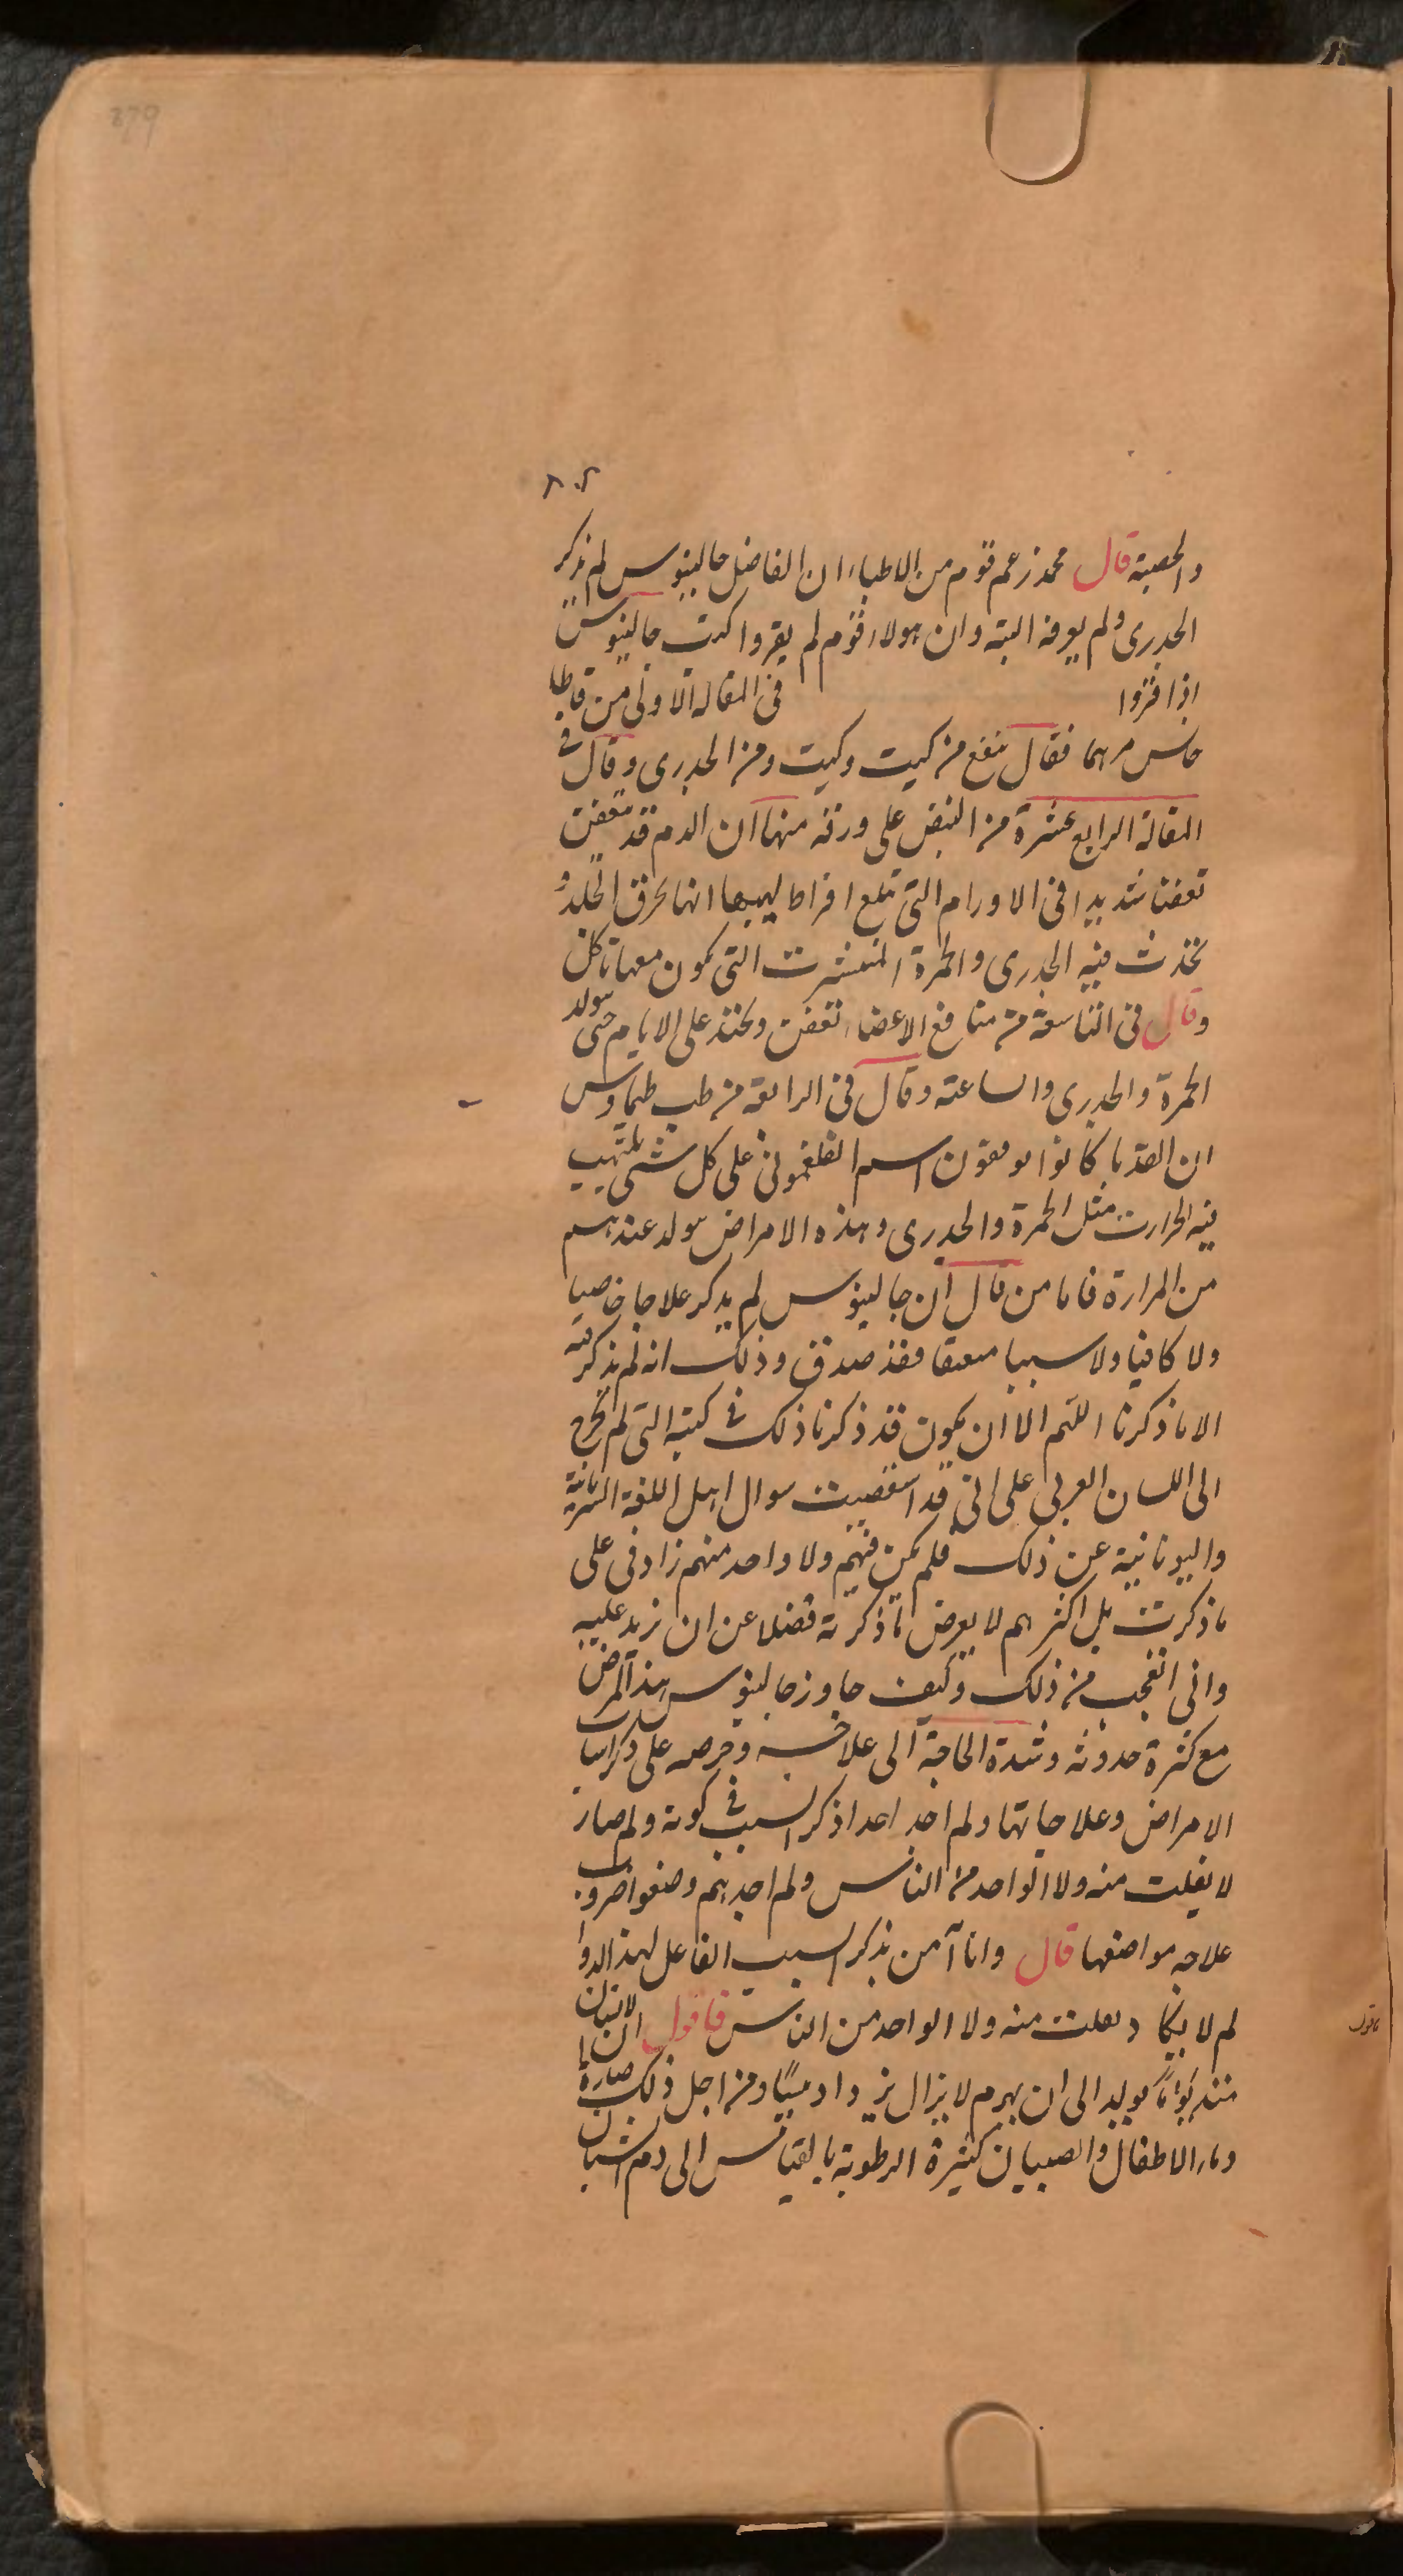 279
٨٠٢
والحصبة قال محمد زعم قوم من الاطباء ان الفاضل جالينوس لم يذكر
الجدرى ولم يعرفه البتة وان هولاء قوم لم يقروا كتب جالينوس
اذا قروا فى المقالة الاولى من قاطا
جانس مرهما فقال ينفع من كيت وكيت ومن الجدرى وقال فى
المقالة الرابع عشرة من النبض على ورقه منها ان الدم قد تعفن
تعفنا شديدا فى الاورام التى تبلغ افراط لهيبها انها تحرق الجلد و
تحدث فيه الجدرى والحمرة المنتشرت التى تكون معها تاكل
وقال فى التاسعة من منافع الاعضاء تعفن وتختد على الايام حتى تتولد
الحمرة والجدرى والساعته وقال فى الرابعة من طب طيماوس
ان القدما كانوا يوقعون اسم الفلغمونى على كل شى يلتهب
فيه الحرارت مثل الحمرة والجدرى وهذه الامراض تتولد عندهم
من المرارة فاما من قال ان جالينوس لم يذكر علاجا خاصيا
ولا كافيا ولا سببا فقد صدق وذلك انه لم يذكر فيه
الا ما ذكرنا اللهم الا ان يكون قد ذكرنا ذلك فى كتبه التى لم تخرج
الى اللسان العربى على انى قد استقصيت سوال اهل اللغة السريانية
واليونانية عن ذلك فلم يكن فيهم ولا واحد منهم زادنى على
ما ذكرت بل اكثرهم لا يعرض ما ذكرته فضلا عن ان زيد عليه
وانى اتعجب من ذلك وكيف جاوز جالينوس هذا المرض
مع كثرة حدوثه وشدة الحاجة الى علاجه وحرصه على ذكر اسباب
الامراض وعلاجاتها ولم اجد احدا ذكر السبب فى كونه ولم صار
لا يفلت منه ولا الواحد من الناس ولم اجدهم وضعوا ضروب
علاجه مواضعها قال وانا آمن بذكر السبب الفاعل لهذا الدوا
لم لا يكاد يفلت منه ولا الواحد من الناس فاقول ان الانسان
منذ يولد الى ان يهرم لا يزال يزداد يبسا ومن اجل ذلك صارة
دماء الاطفال والصبيان كثيرة الرطوبة بالقياس الى دم الشبان